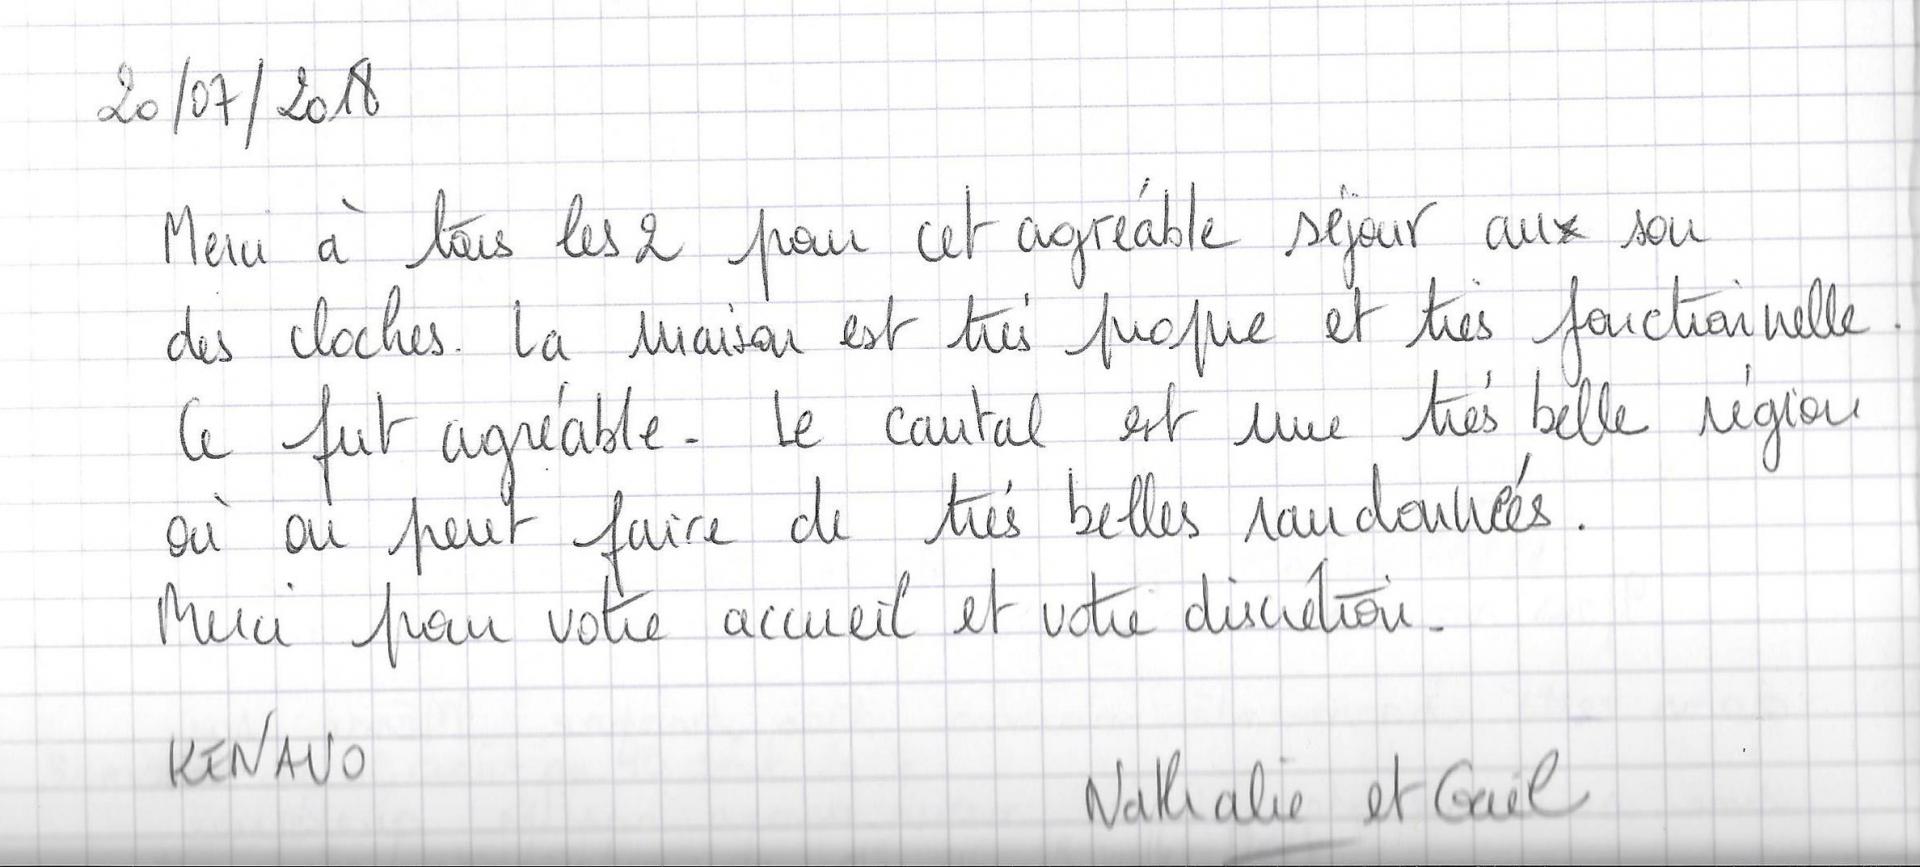 20/07/2018
Merci à tous les 2 pour cet agréable séjour aux son
des cloches. La maison est très propre et très fonctionnelle.
Ce fut agréable. Le cantal est une très belle région
où on peut faire de très belles randonnées.
Merci pour votre accueil et votre discrétion.
KENAVO
Nathalie et Gaël